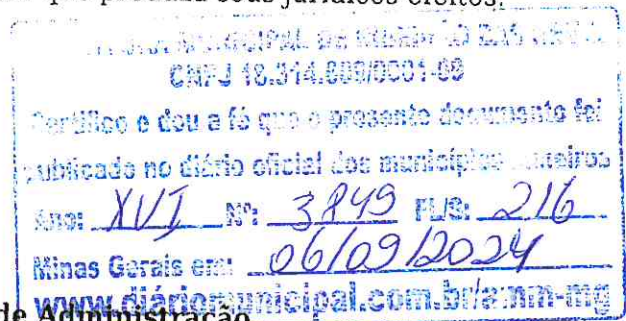 que produza seus jurídicos efeitos.
MUNICIPAL DE RIBEIRÃO DAS NEVES
CNPJ 18.314.609/0001-09
Certifico e dou a fé que o presente documento fei
publicado no diário oficial dos municípios mineiros
Ano: XVI Nº: 3849 FL/S: 216
Minas Gerais em: 06/09/2024
www.diáriomunicipal.com.br/amm-mg
de Administração